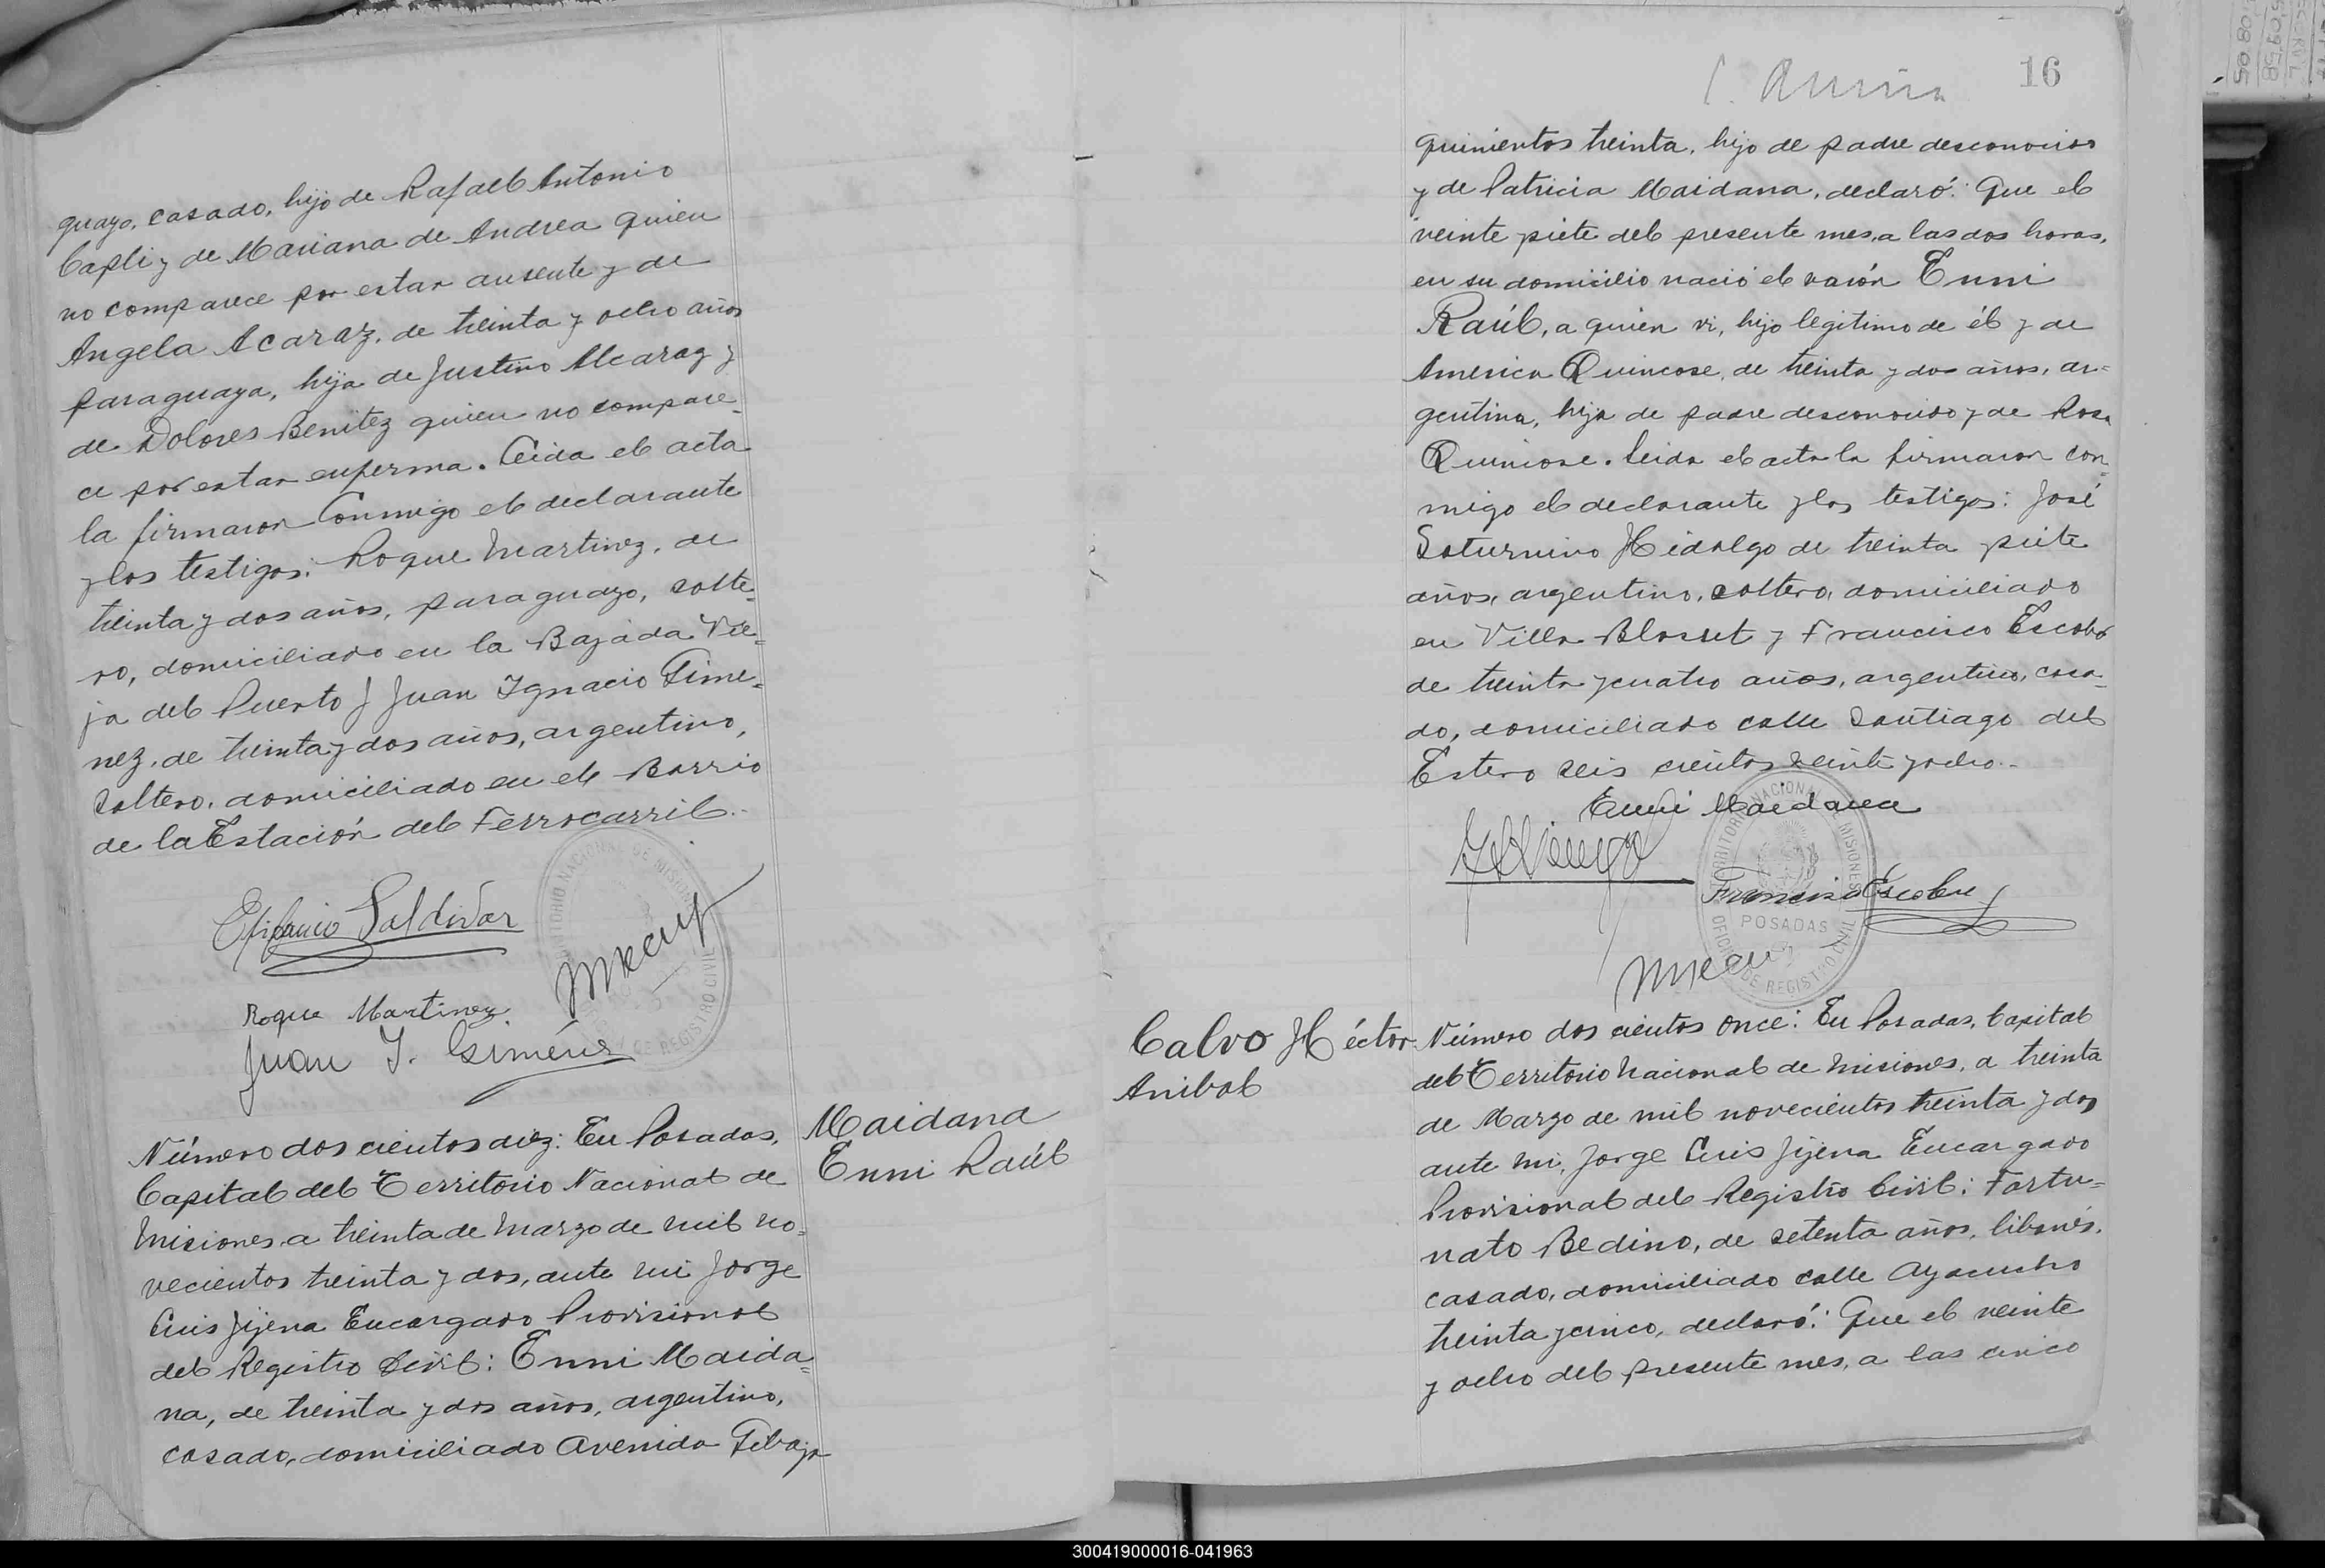 guayo, casado, hijo de Rafael Antonio
Capli y de Mariana de Andrea quien
no comparece por estar ausente y de
Angela Acaraz, de treinta y ocho años
paraguaya, hija de Justino Alcaraz y
de Dolores Benitez quien no compare-
ce por estar enferma. Leida el acta
la firmaron Conmigo el declarante
y los testigos: Roque Martinez, de
treinta y dos años, paraguayo, solte-
ro, domiciliado en la Bajada Vie-
ja del Puerto y Juan Ygnacio Gime-
nez, de treinta y dos años, argentino,
soltero, domiciliado en el Barrio
de la Estación del Ferrocarril.-
Epifanio Saldivar
Roque Martinez
Juan Y. Giménez
TERRITORIO NACIONAL DE MISIONES
DE REGISTRO CIVIL
Número dos cientos diez: En Posadas,
Capital del Territorio Nacional de
Misiones a treinta de Marzo de mil no-
vecientos treinta y dos, ante mi Jorge
Luis Jijena Encargado Provisional
del Registro Civil: Enni Maida-
na, de treinta y dos años, argentino,
casado, domiciliado Avenida Gibaja
Maidana
Enni Raúl
16
quinientos treinta, hijo de padre desconocido
y de Patricia Maidana, declaró: Que el
veinte y siete del presente mes, a las dos horas,
en su domicilio nació el varón Enni
Raúl, a quien vi, hijo legitimo de él y de
America Quincose, de treinta y dos años, ar-
gentina, hija de padre desconocido y de Rosa
Quincose. Leida el acta la firmaron con-
migo el declarante y los testigos: José
Saturnino Hidalgo de treinta y siete
años, argentino, soltero, domiciliado
en Villa Blosset y Francisco Escobar
de treinta y cuatro años, argentino, casa-
do, domiciliado calle Santiago del
Estero seis cientos veinte y ocho.-
Enni Maidana
Francisco Escobar
TERRITORIO NACIONAL DE MISIONES
POSADAS
OFICINA DE REGISTRO CIVIL
Calvo Héctor
Anibal
Número dos cientos once: En Posadas, Capital
del Territorio Nacional de Misiones, a treinta
de Marzo de mil novecientos treinta y dos
ante mi, Jorge Luis Jijena Encargado
Provisional del Registro Civil: Fortu-
nato Bedino, de setenta años, libanés,
casado, domiciliado calle Ayacucho
treinta y cinco, declaró: Que el veinte
y ocho del presente mes, a las cinco
300419000016-041963